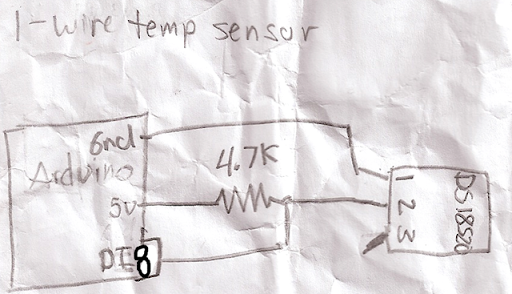 1-wire temp sensor
Gnd
Arduino
4.7K
5v
DI8
1
2
3
DS18S20